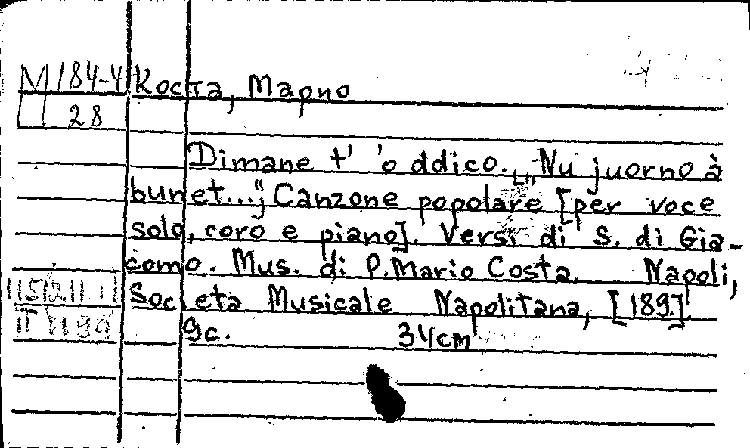 М 184-4 Коста, Марио
28
Dimane t' 'o ddico. „Nu juorno à
bunet...", Canzone popolare [per voce
solo, coro e piano]. Versi di S. di Gia-
como. Mus. di P. Mario Costa. Napoli,
Società Musicale Napolitana, [189.]
9с. 34см